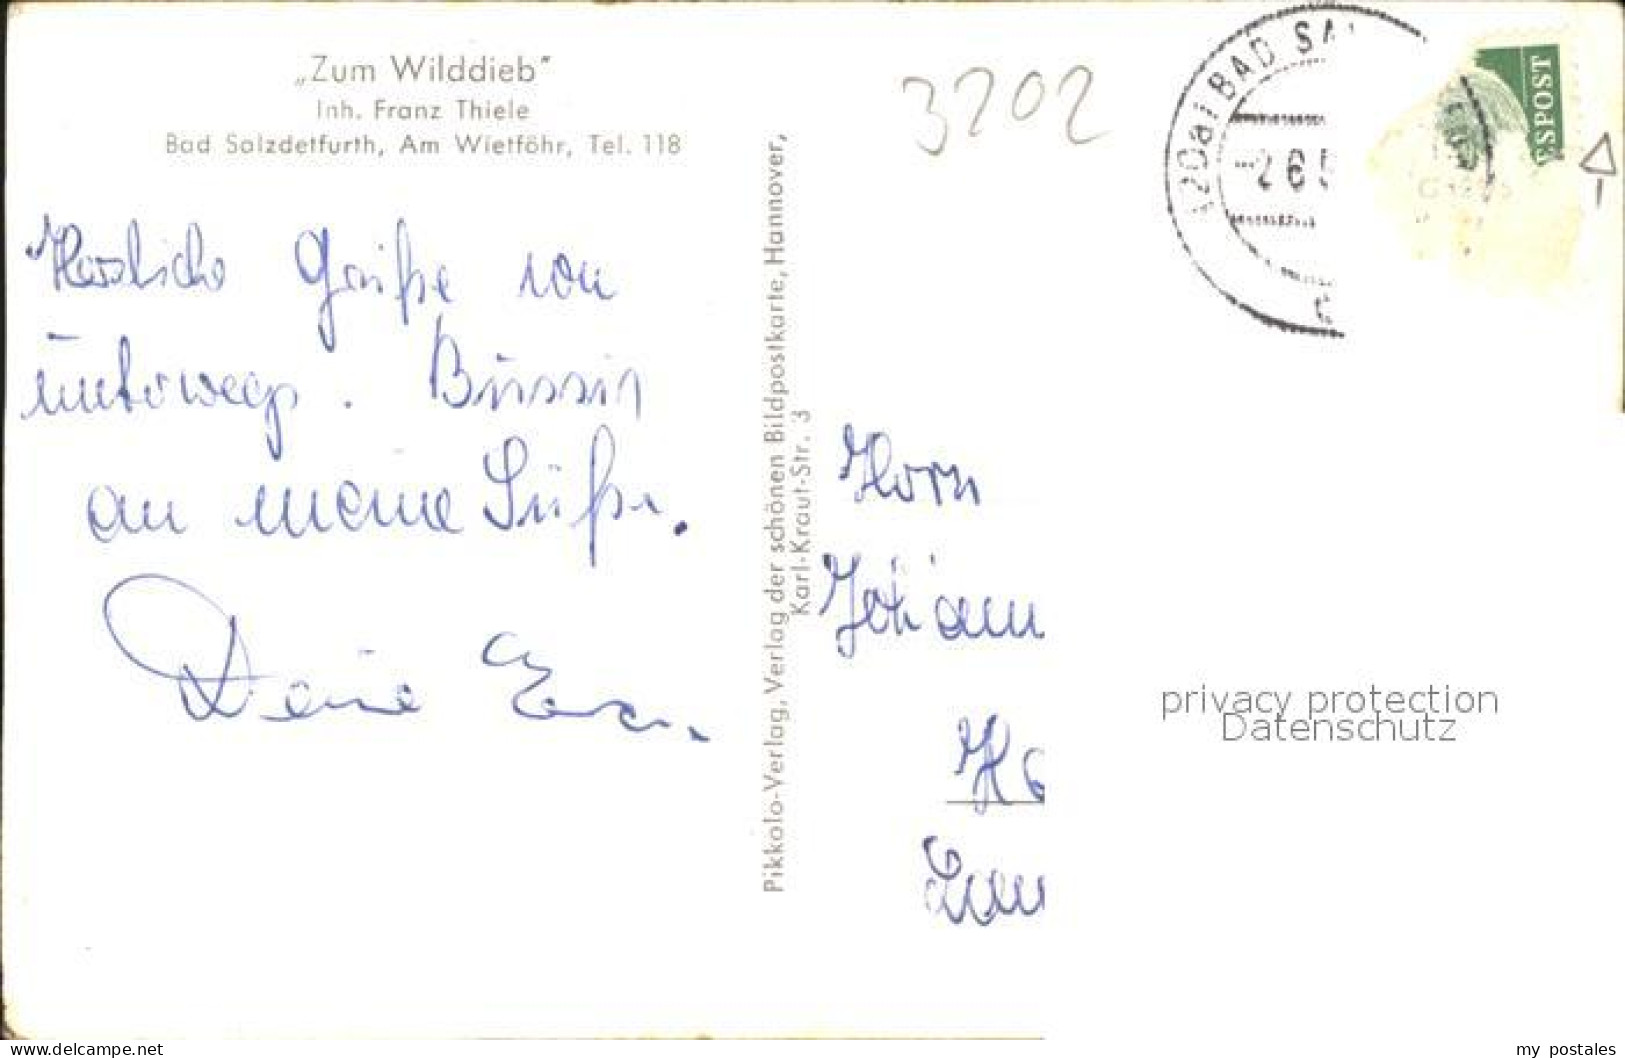 „Zum Wilddieb"
Inh. Franz Thiele
Bad Salzdetfurth, Am Wietföhr, Tel. 118
3202
Herzliche Grüße von
unterwegs. Bussis
an meine Süße.
Deine
Pikkolo-Verlag, Verlag der schönen Bildpostkarte, Hannover,
Karl-Kraut-Str. 3
(20a) BAD SA
-2 6 5
ESPOST
Herrn
Johann
privacy protection
Datenschutz
www.delcampe.net
my_postales